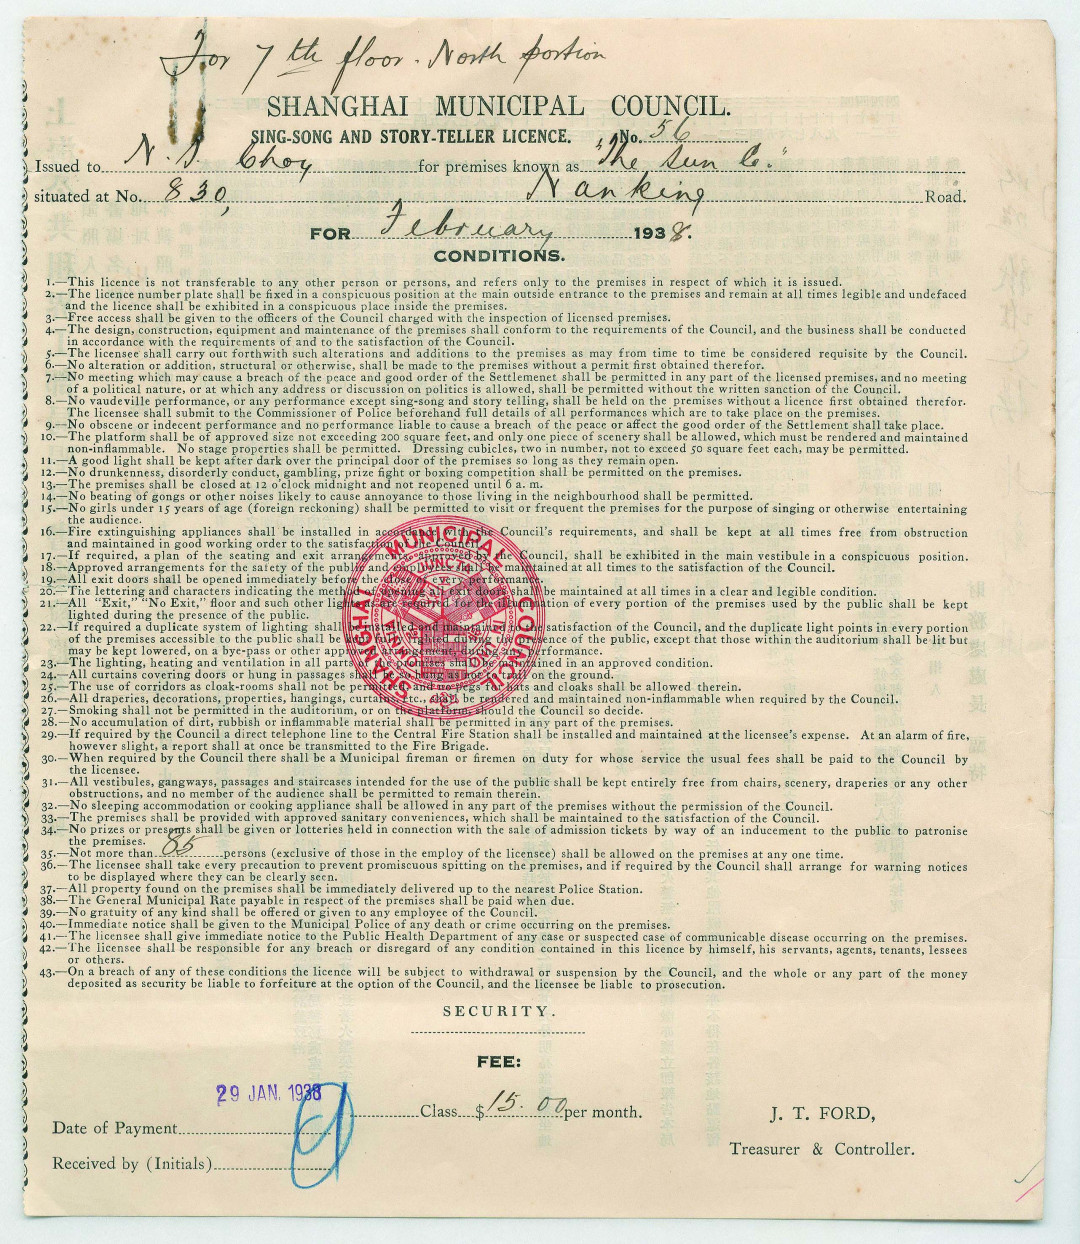 For 7th floor. North portion
SHANGHAI MUNICIPAL COUNCIL.
SING-SONG AND STORY-TELLER LICENCE. No. 56
Issued to N. S. Choy for premises known as "The Sun Co."
situated at No. 830, Nanking Road.
FOR February 1938.
CONDITIONS.
1.—This licence is not transferable to any other person or persons, and refers only to the premises in respect of which it is issued.
2.—The licence number plate shall be fixed in a conspicuous position at the main outside entrance to the premises and remain at all times legible and undefaced
and the licence shall be exhibited in a conspicuous place inside the premises.
3.—Free access shall be given to the officers of the Council charged with the inspection of licensed premises.
4.—The design, construction, equipment and maintenance of the premises shall conform to the requirements of the Council, and the business shall be conducted
in accordance with the requirements of and to the satisfaction of the Council.
5.—The licensee shall carry out forthwith such alterations and additions to the premises as may from time to time be considered requisite by the Council.
6.—No alteration or addition, structural or otherwise, shall be made to the premises without a permit first obtained therefor.
7.—No meeting which may cause a breach of the peace and good order of the Settlemenet shall be permitted in any part of the licensed premises, and no meeting
of a political nature, or at which any address or discussion on politics is allowed, shall be permitted without the written sanction of the Council.
8.—No vaudeville performance, or any performance except sing-song and story telling, shall be held on the premises without a licence first obtained therefor.
The licensee shall submit to the Commissioner of Police beforehand full details of all performances which are to take place on the premises.
9.—No obscene or indecent performance and no performance liable to cause a breach of the peace or affect the good order of the Settlement shall take place.
10.—The platform shall be of approved size not exceeding 200 square feet, and only one piece of scenery shall be allowed, which must be rendered and maintained
non-inflammable. No stage properties shall be permitted. Dressing cubicles, two in number, not to exceed 50 square feet each, may be permitted.
11.—A good light shall be kept after dark over the principal door of the premises so long as they remain open.
12.—No drunkenness, disorderly conduct, gambling, prize fight or boxing competition shall be permitted on the premises.
13.—The premises shall be closed at 12 o'clock midnight and not reopened until 6 a. m.
14.—No beating of gongs or other noises likely to cause annoyance to those living in the neighbourhood shall be permitted.
15.—No girls under 15 years of age (foreign reckoning) shall be permitted to visit or frequent the premises for the purpose of singing or otherwise entertaining
the audience.
16.—Fire extinguishing appliances shall be installed in accordance with the Council's requirements, and shall be kept at all times free from obstruction
and maintained in good working order to the satisfaction of the Council.
17.—If required, a plan of the seating and exit arrangements, approved by the Council, shall be exhibited in the main vestibule in a conspicuous position.
18.—Approved arrangements for the safety of the public and employees shall be maintained at all times to the satisfaction of the Council.
19.—All exit doors shall be opened immediately before the close of every performance.
20.—The lettering and characters indicating the method of opening all exit doors shall be maintained at all times in a clear and legible condition.
21.—All "Exit," "No Exit," floor and such other lights as are required for the illumination of every portion of the premises used by the public shall be kept
lighted during the presence of the public.
22.—If required a duplicate system of lighting shall be installed and maintained to the satisfaction of the Council, and the duplicate light points in every portion
of the premises accessible to the public shall be kept fully lighted during the presence of the public, except that those within the auditorium shall be lit but
may be kept lowered, on a bye-pass or other approved arrangement, during any performance.
23.—The lighting, heating and ventilation in all parts of the premises shall be maintained in an approved condition.
24.—All curtains covering doors or hung in passages shall be so hung as not to trail on the ground.
25.—The use of corridors as cloak-rooms shall not be permitted and no pegs for hats and cloaks shall be allowed therein.
26.—All draperies, decorations, properties, hangings, curtains, etc., shall be rendered and maintained non-inflammable when required by the Council.
27.—Smoking shall not be permitted in the auditorium, or on the platform should the Council so decide.
28.—No accumulation of dirt, rubbish or inflammable material shall be permitted in any part of the premises.
29.—If required by the Council a direct telephone line to the Central Fire Station shall be installed and maintained at the licensee's expense. At an alarm of fire,
however slight, a report shall at once be transmitted to the Fire Brigade.
30.—When required by the Council there shall be a Municipal fireman or firemen on duty for whose service the usual fees shall be paid to the Council by
the licensee.
31.—All vestibules, gangways, passages and staircases intended for the use of the public shall be kept entirely free from chairs, scenery, draperies or any other
obstructions, and no member of the audience shall be permitted to remain therein.
32.—No sleeping accommodation or cooking appliance shall be allowed in any part of the premises without the permission of the Council.
33.—The premises shall be provided with approved sanitary conveniences, which shall be maintained to the satisfaction of the Council.
34.—No prizes or presents shall be given or lotteries held in connection with the sale of admission tickets by way of an inducement to the public to patronise
the premises.
35.—Not more than 85 persons (exclusive of those in the employ of the licensee) shall be allowed on the premises at any one time.
36.—The licensee shall take every precaution to prevent promiscuous spitting on the premises, and if required by the Council shall arrange for warning notices
to be displayed where they can be clearly seen.
37.—All property found on the premises shall be immediately delivered up to the nearest Police Station.
38.—The General Municipal Rate payable in respect of the premises shall be paid when due.
39.—No gratuity of any kind shall be offered or given to any employee of the Council.
40.—Immediate notice shall be given to the Municipal Police of any death or crime occurring on the premises.
41.—The licensee shall give immediate notice to the Public Health Department of any case or suspected case of communicable disease occurring on the premises.
42.—The licensee shall be responsible for any breach or disregard of any condition contained in this licence by himself, his servants, agents, tenants, lessees
or others.
43.—On a breach of any of these conditions the licence will be subject to withdrawal or suspension by the Council, and the whole or any part of the money
deposited as security be liable to forfeiture at the option of the Council, and the licensee be liable to prosecution.
SHANGHAI MUNICIPAL COUNCIL
OMNIA JUNCTA IN UNO
SECURITY.
FEE:
29 JAN. 1938
Class $15.00 per month.
Date of Payment
Received by (Initials)
J. T. FORD,
Treasurer & Controller.